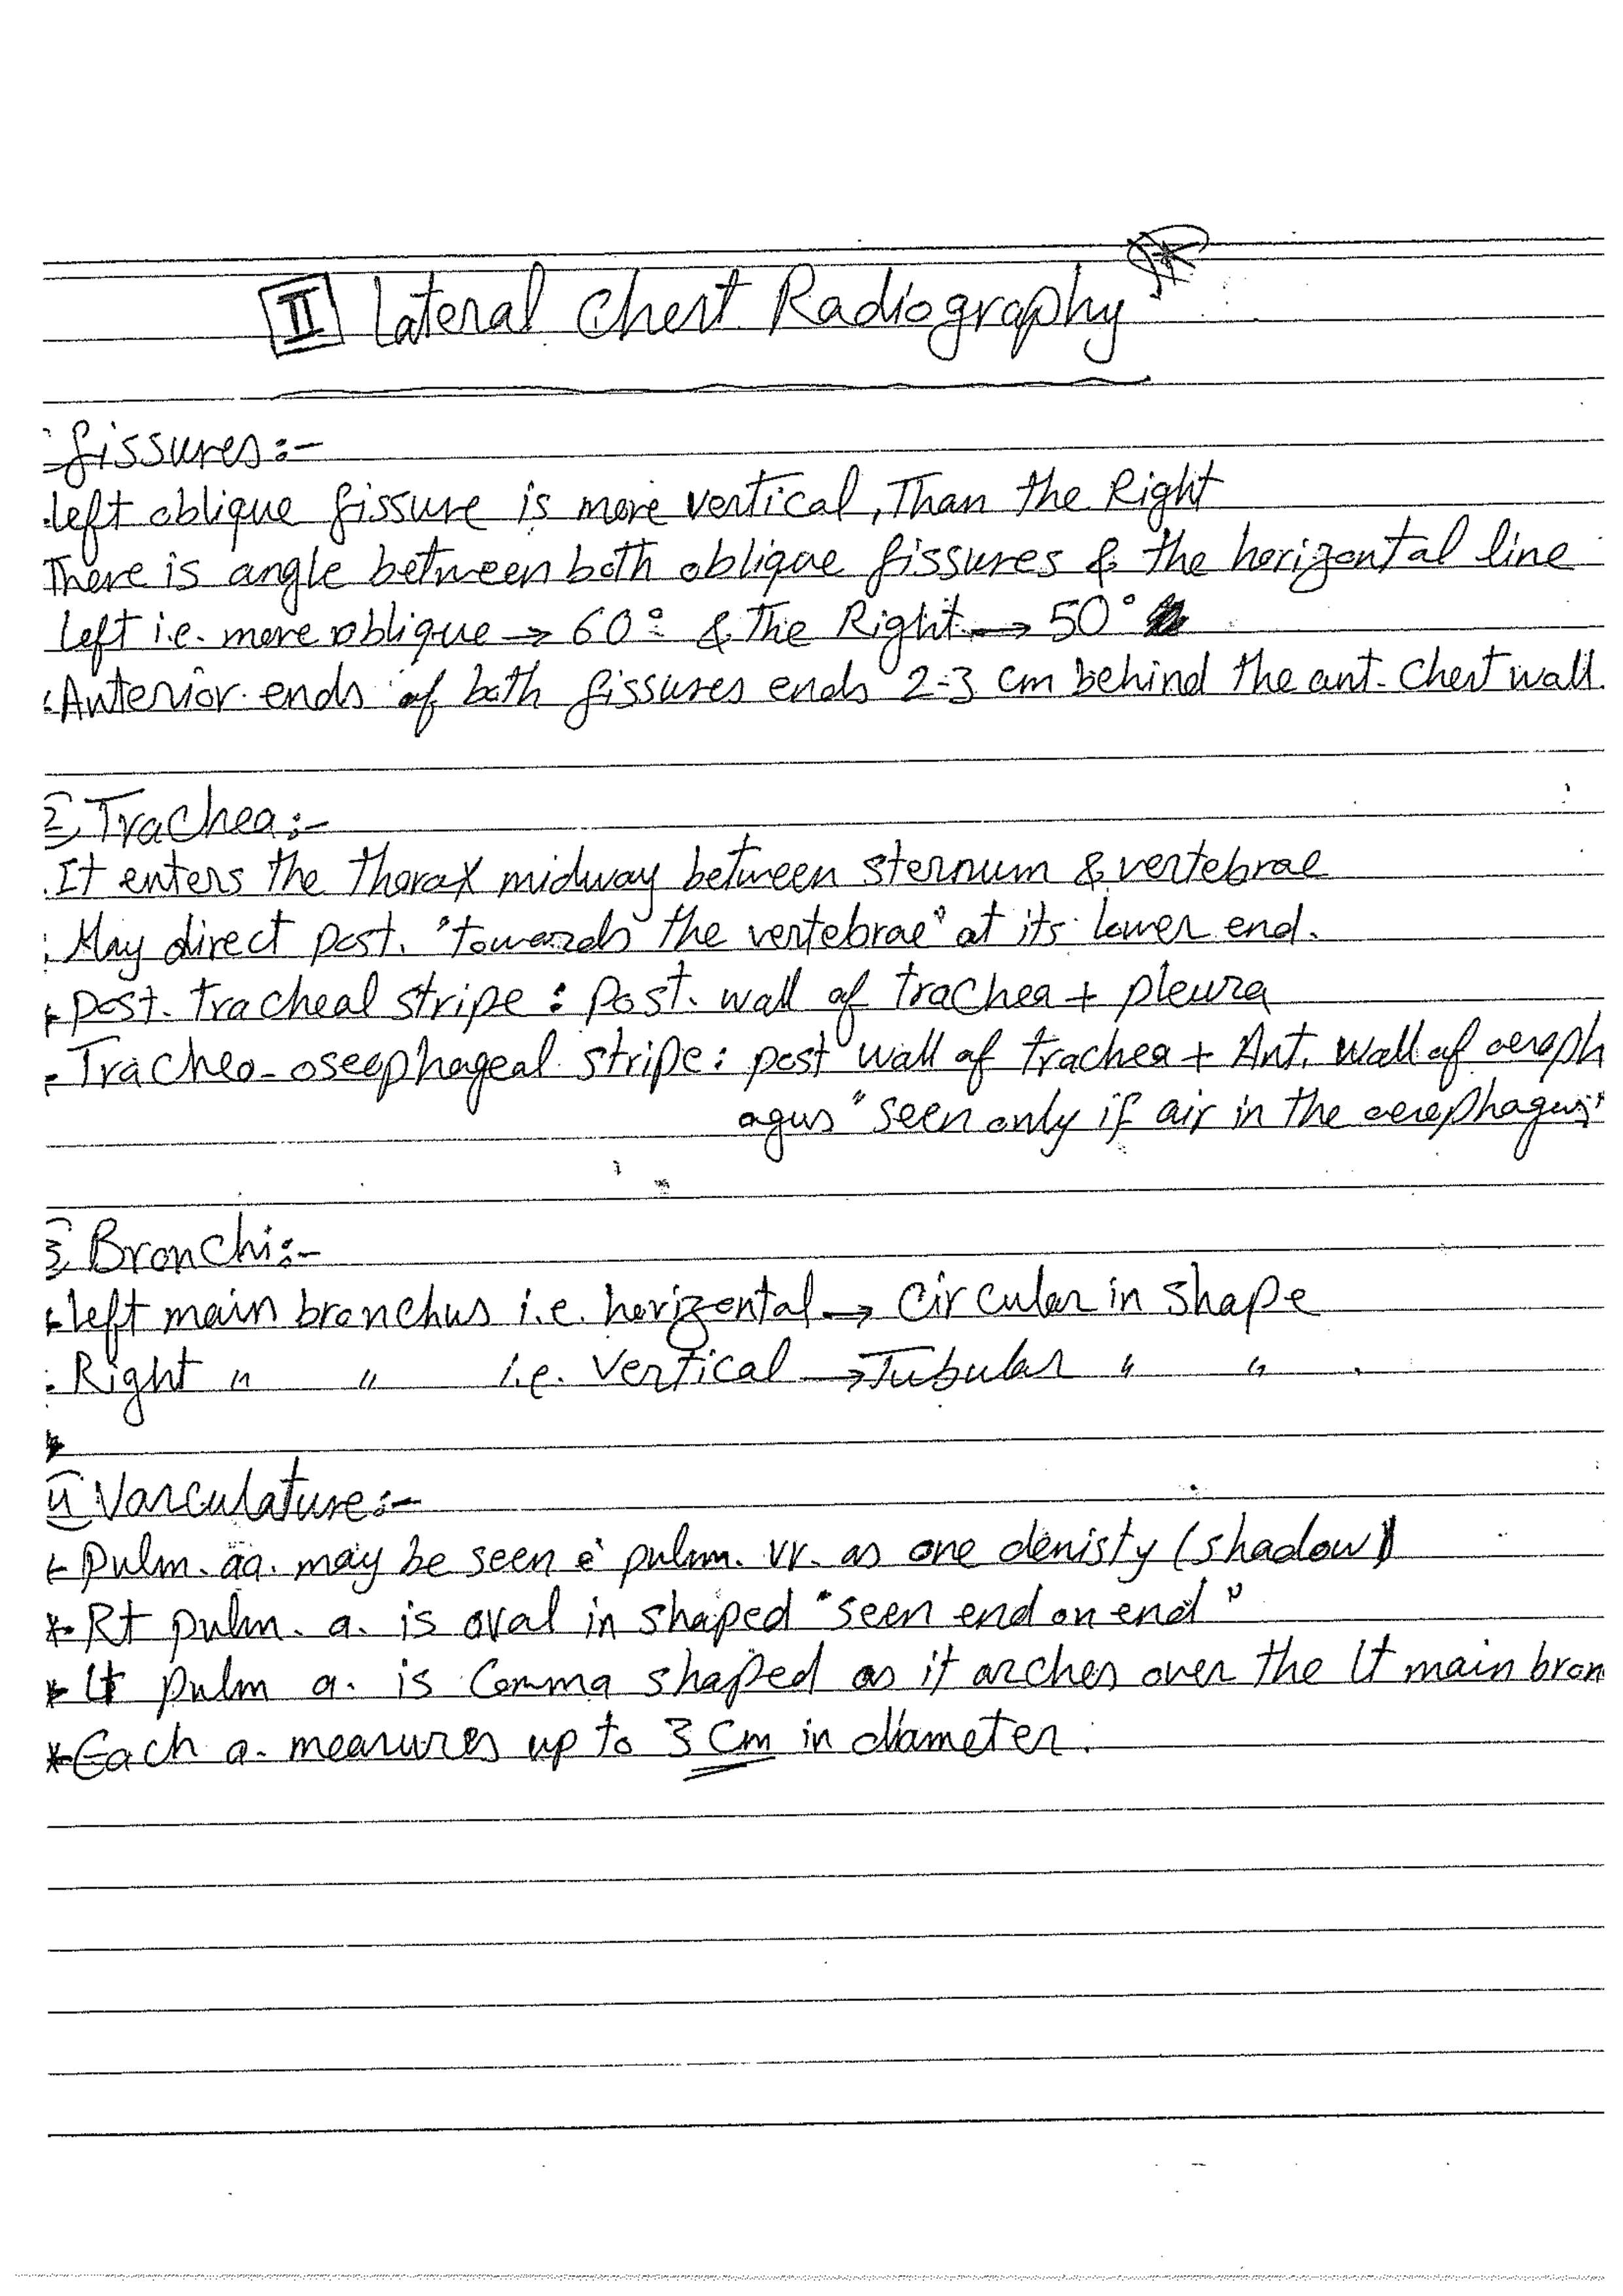 II Lateral Chest Radiography *
fissures:-
left oblique fissure is more vertical, Than the Right
There is angle between both oblique fissures & the horizental line
left i.e. more oblique → 60° & The Right → 50°
Anterior ends of both fissures ends 2-3 cm behind the ant. Chest wall.
2) Trachea:-
It enters the thorax midway between sternum & vertebrae
May direct post. "towards the vertebrae" at its lower end.
post. tracheal stripe : post. wall of trachea + pleura
Tracheo-oseophageal stripe: post wall of trachea + Ant. wall of oesoph
agus "seen only if air in the oesophagus"
3) Bronchi:-
left main bronchus i.e. horizental → Circular in shape
Right " " i.e. Vertical → Tubular " " .
4) Vasculature:-
Pulm. aa. may be seen c̄ pulm. vv. as one denisty (shadow)
* Rt pulm. a. is oval in shaped "seen end on end"
* Lt pulm a. is Comma shaped as it arches over the lt main bron
* Each a. measures up to 3 Cm in diameter.